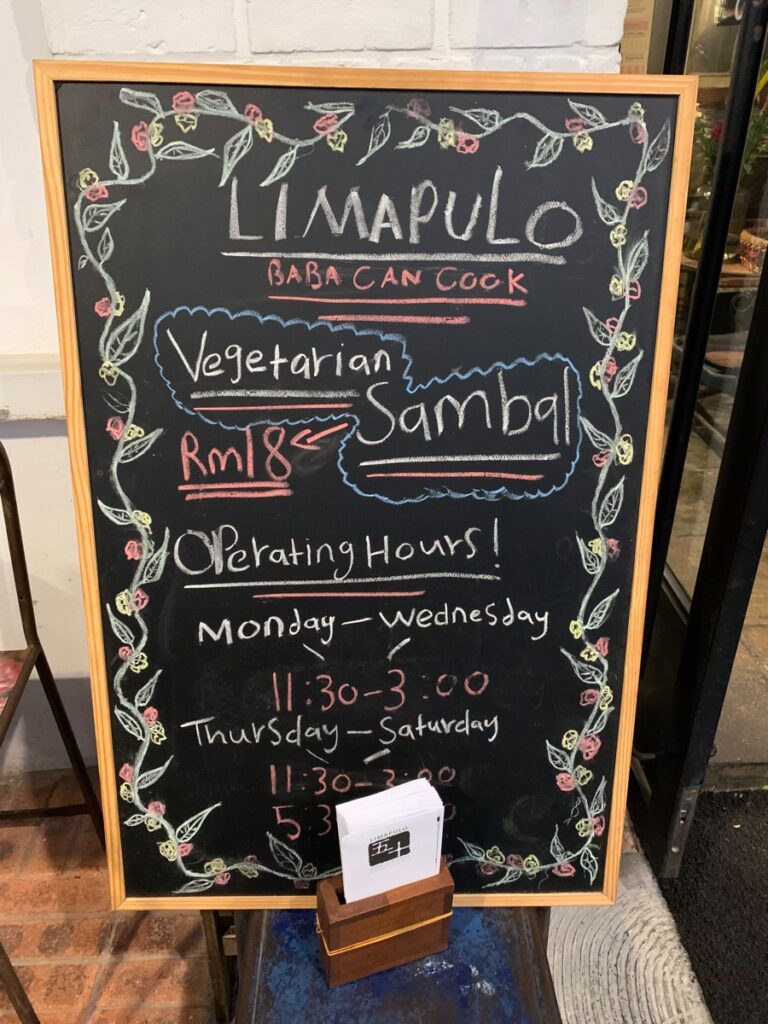 LIMAPULO
BABA CAN COOK
Vegetarian
Sambal
Rm18
Operating Hours!
Monday – Wednesday
11:30 – 3:00
Thursday – Saturday
11:30 – 3:00
5:3
LIMAPULO
五十